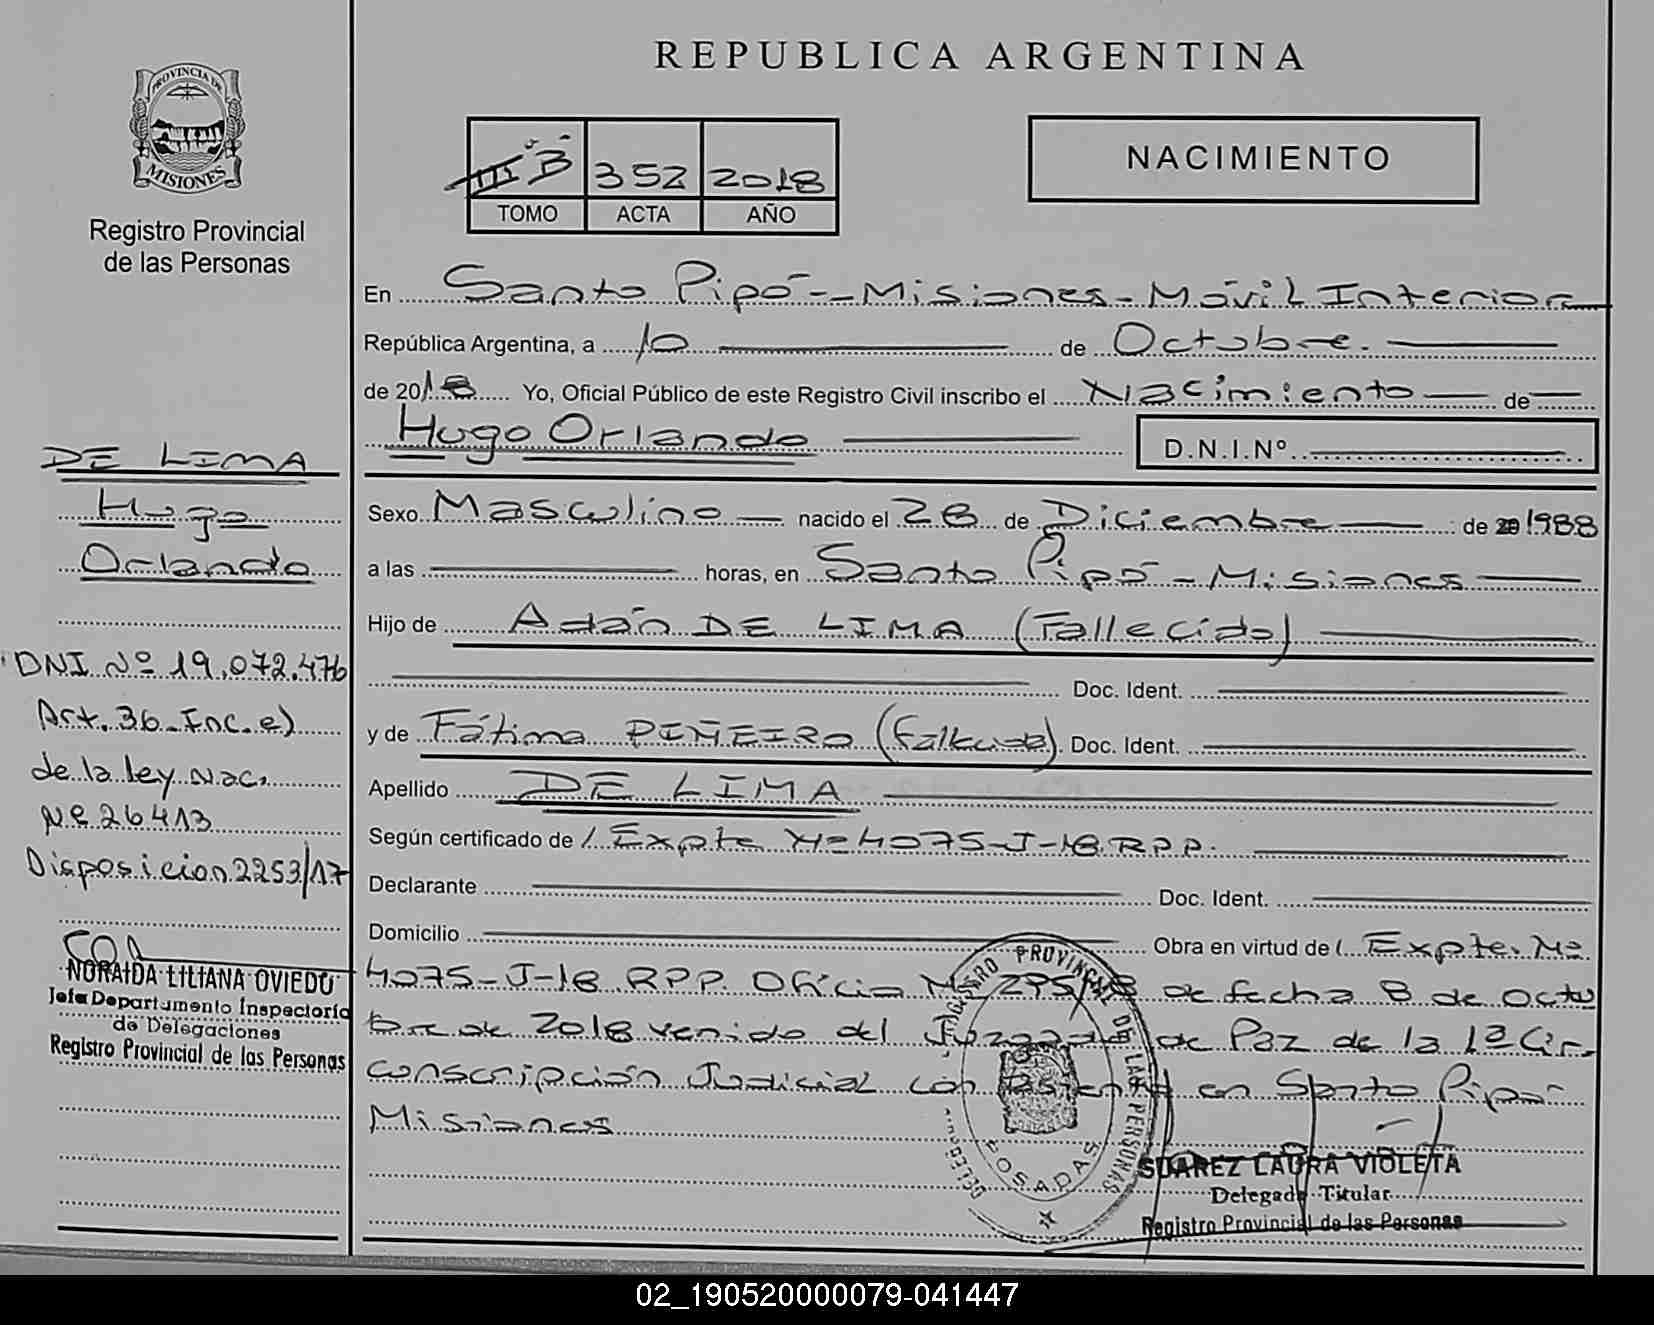 PROVINCIA DE
MISIONES
Registro Provincial
de las Personas
DE LIMA
Hugo
Orlando
DNI Nº 19.072.476
Art. 36 Inc. e)
de la ley Nac.
Nº 26413
Disposicion 2253/17
NORAIDA LILIANA OVIEDO
Jefa Departamento Inspectoría
de Delegaciones
Registro Provincial de las Personas
REPUBLICA ARGENTINA
III B 352 2018
TOMO ACTA AÑO
NACIMIENTO
En Santo Pipó - Misiones - Móvil Interior
República Argentina, a 10 de Octubre.
de 2018 Yo, Oficial Público de este Registro Civil inscribo el Nacimiento de
Hugo Orlando D.N.I.Nº
Sexo Masculino nacido el 28 de Diciembre de 1988
a las horas, en Santo Pipó - Misiones
Hijo de Adán DE LIMA (Fallecido)
Doc. Ident.
y de Fátima PIÑEIRO (Fallecida) Doc. Ident.
Apellido DE LIMA
Según certificado de Expte Nº 4075-J-18 RPP.
Declarante Doc. Ident.
Domicilio Obra en virtud de Expte. Nº
4075-J-18 RPP. Oficio Nº 295/18 de fecha 8 de Octu
bre de 2018 venido del Juzgado de Paz de la 1ª Cir-
conscripción Judicial con asiento en Santo Pipó-
Misiones
REGISTRO PROVINCIAL DE LAS PERSONAS
POSADAS
SUAREZ LAURA VIOLETA
Delegada Titular
Registro Provincial de las Personas
02_190520000079-041447